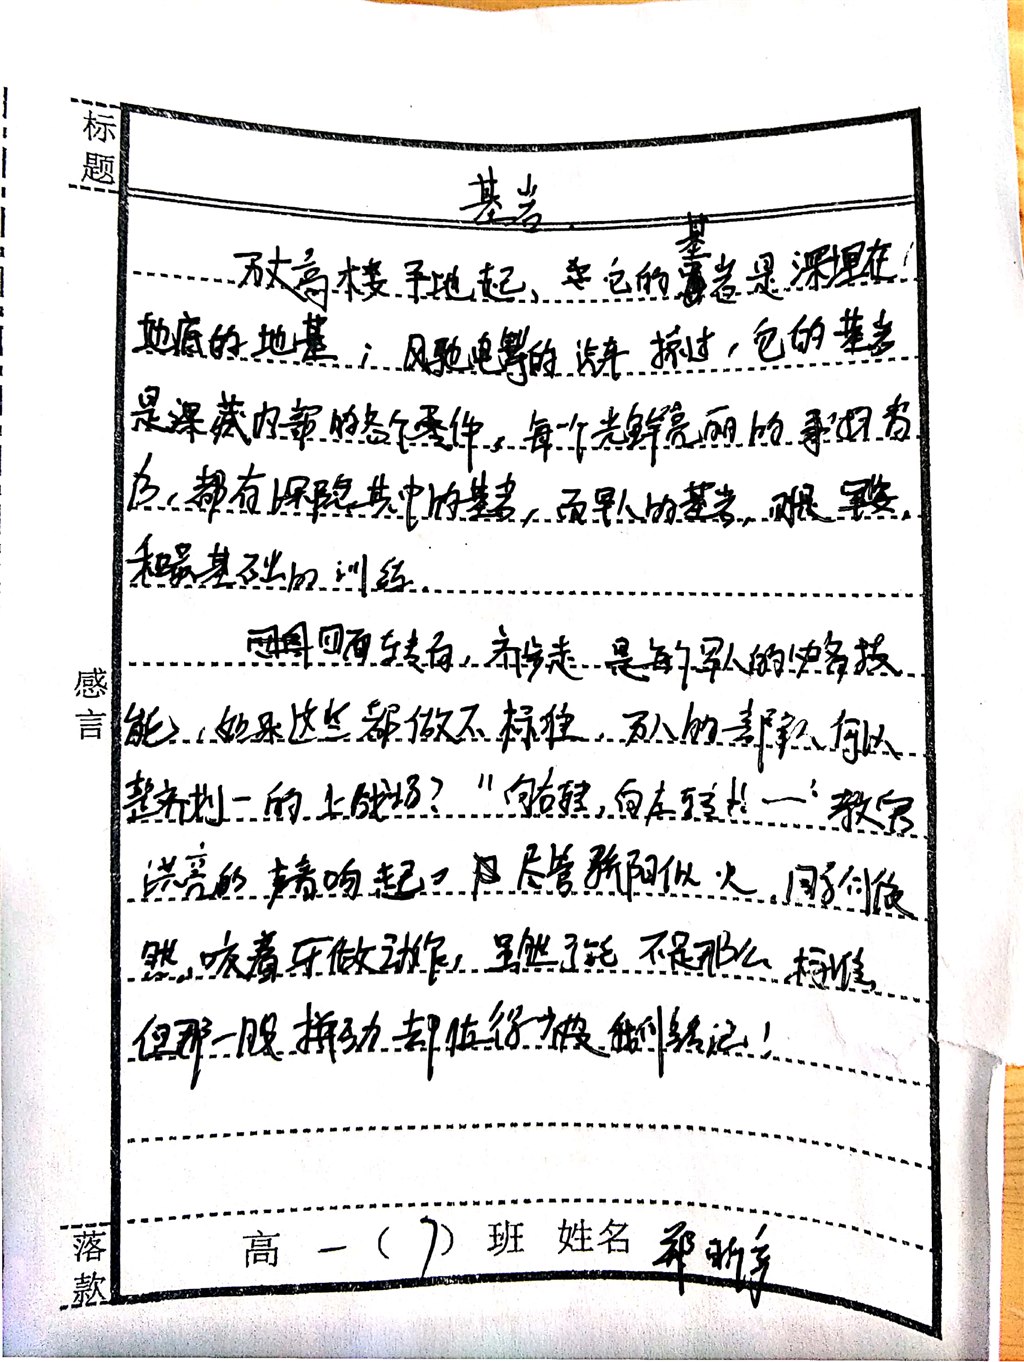 标题
基岩
万丈高楼平地起,
它的基岩是深埋在
地底的地基;风驰电掣的汽车掠过,它的基岩
是深藏内部的各个零件。每一个光鲜亮丽的事物背
后,都有深隐其中的基岩,而军人的基岩,则是军姿
和最基础的训练。
四面转向,齐步走是每个军人的必备技
能,如果这些都做不标准,万人的部队何以
整齐划一的上战场?"向右转,向左转!——"教官
洪亮的声音响起,尽管骄阳似火,同学们依
然咬着牙做动作,虽然可能不是那么标准,
但那一股拼劲却值得被我们铭记!
感言
落款
高一(7)班 姓名 郑